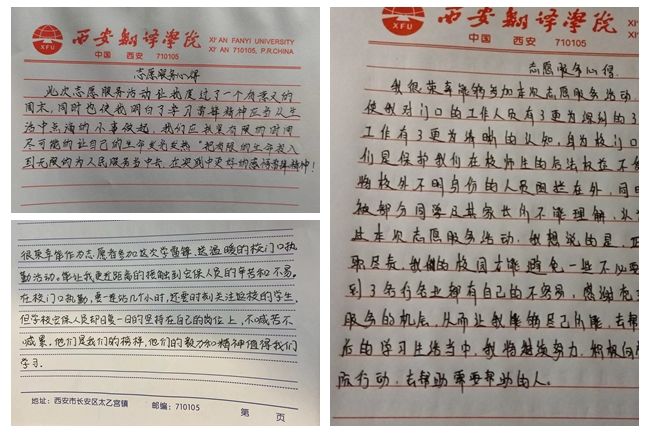 西安翻译学院
XI'AN FANYI UNIVERSITY
XFU
中国 西安 710105
XI'AN 710105, P.R.CHINA
志愿服务心得
此次志愿服务活动让我度过了一个有意义的
周末,同时也使我明白了学习雷锋精神应当从生
活中点滴的小事做起,我们应当在有限的时间
尽可能的让自己的生命发光发热。"把有限的生命投入
到无限的为人民服务当中去,在实践中更好的感悟雷锋精神!
很荣幸能作为志愿者参加这次学雷锋,送温暖的校门口执
勤活动。能让我更近距离的接触到安保人员的辛苦和不易。
在校门口执勤,要一连站几个小时,还要时刻关注返校的学生,
但学校安保人员却日复一日的坚持在自己的岗位上,不喊苦不
喊累。他们是我们的榜样,他们的毅力和精神值得我们
学习.
地址:西安市长安区太乙宫镇 邮编:710105 第 页
西安翻译学院
XFU
中国 西安 710105
XI'
XI'
志愿服务心得.
我很荣幸能够参加本次志愿服务活动
使我对门口的工作人员有了更为深刻的了
工作有了更为清晰的认知,身为校门口
们是保护我们在校师生的合法权益不
将校外不明身份的人员阻拦在外,同
被部分同学及其家长所不能理解,
过本次志愿服务活动,我想说的是,正
职尽责,我们的校园才能避免一些不必要
到了各行各业都有自己的不容易,感谢
服务的机会,从而让我能够尽己所能,去帮
后的学习生活当中,我将继续努力,积极向
际行动,去帮助需要帮助的人。